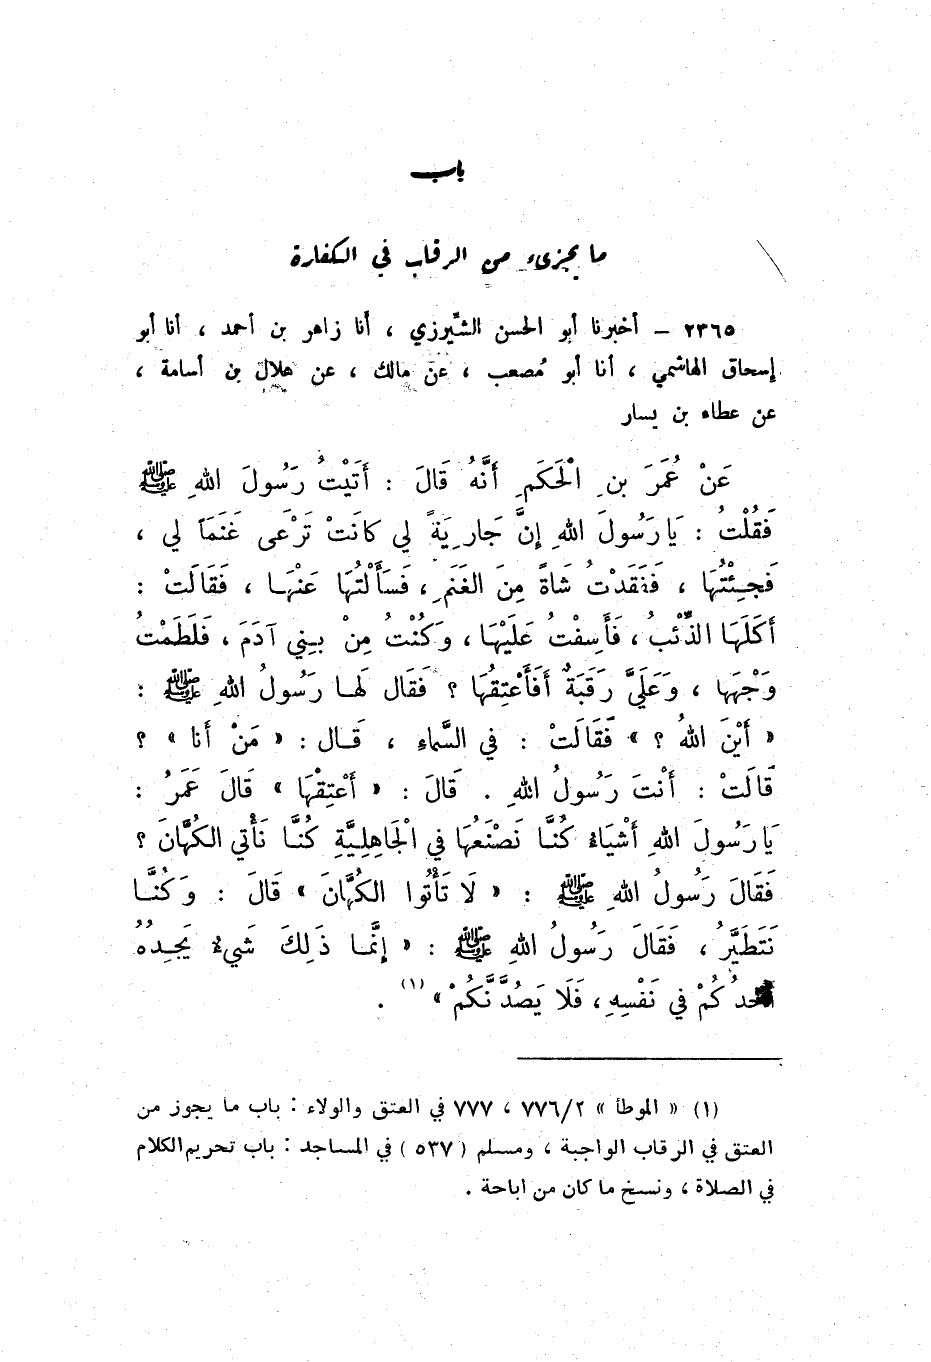 باب
ما يجزىء من الرقاب في الكفارة
٢٣٦٥ - أخبرنا أبو الحسن الشِّيرزي ، أنا زاهر بن أحمد ، أنا أبو
إسحاق الهاشمي ، أنا أبو مُصعب ، عن مالك ، عن هلال بن أسامة ،
عن عطاء بن يسار
عَنْ عُمَرَ بنِ الْحَكَمِ أَنَّهُ قَالَ : أَتَيْتُ رَسُولَ اللهِ ﷺ
فَقُلْتُ : يَا رَسُولَ اللهِ إِنَّ جَارِيَةً لي كانَتْ تَرْعَى غَنَماً لي ،
فَجِئْتُهَا ، فَفَقَدْتُ شَاةً مِنَ الغَنَمِ ، فَسَأَلْتُهَا عَنْهَا ، فَقَالَتْ :
أَكَلَهَا الذِّئْبُ ، فَأَسِفْتُ عَلَيْهَا ، وَكُنْتُ مِنْ بَنِي آدَمَ ، فَلَطَمْتُ
وَجْهَهَا ، وَعَلَيَّ رَقَبَةٌ أَفَأَعْتِقُهَا ؟ فَقَال لَها رَسُولُ اللهِ ﷺ :
« أَيْنَ اللهُ ؟ » فَقَالَتْ : في السَّماءِ ، قَال : « مَنْ أَنا » ؟
قَالَتْ : أَنْتَ رَسُولُ اللهِ . قَالَ : « أَعْتِقْهَا » قَالَ عُمَرُ :
يَا رَسُولَ اللهِ أَشْيَاءُ كُنَّا نَصْنَعُهَا فِي الْجَاهِلِيَّةِ كُنَّا نَأْتِي الكُهَّانَ ؟
فَقَالَ رَسُولُ اللهِ ﷺ : « لَا تَأْتُوا الكُهَّانَ » قَالَ : وَكُنَّا
نَتَطَيَّرُ ، فَقَالَ رَسُولُ اللهِ ﷺ : « إِنَّمَا ذَلِكَ شَيءٌ يَجِدُهُ
أَحَدُكُمْ فِي نَفْسِهِ ، فَلَا يَصُدَّنَّكُمْ » (١) .
(١) « الموطأ » ٧٧٦/٢ ، ٧٧٧ في العتق والولاء : باب ما يجوز من
العتق في الرقاب الواجبة ، ومسلم ( ٥٣٧ ) في المساجد : باب تحريم الكلام
في الصلاة ، ونسخ ما كان من اباحة .